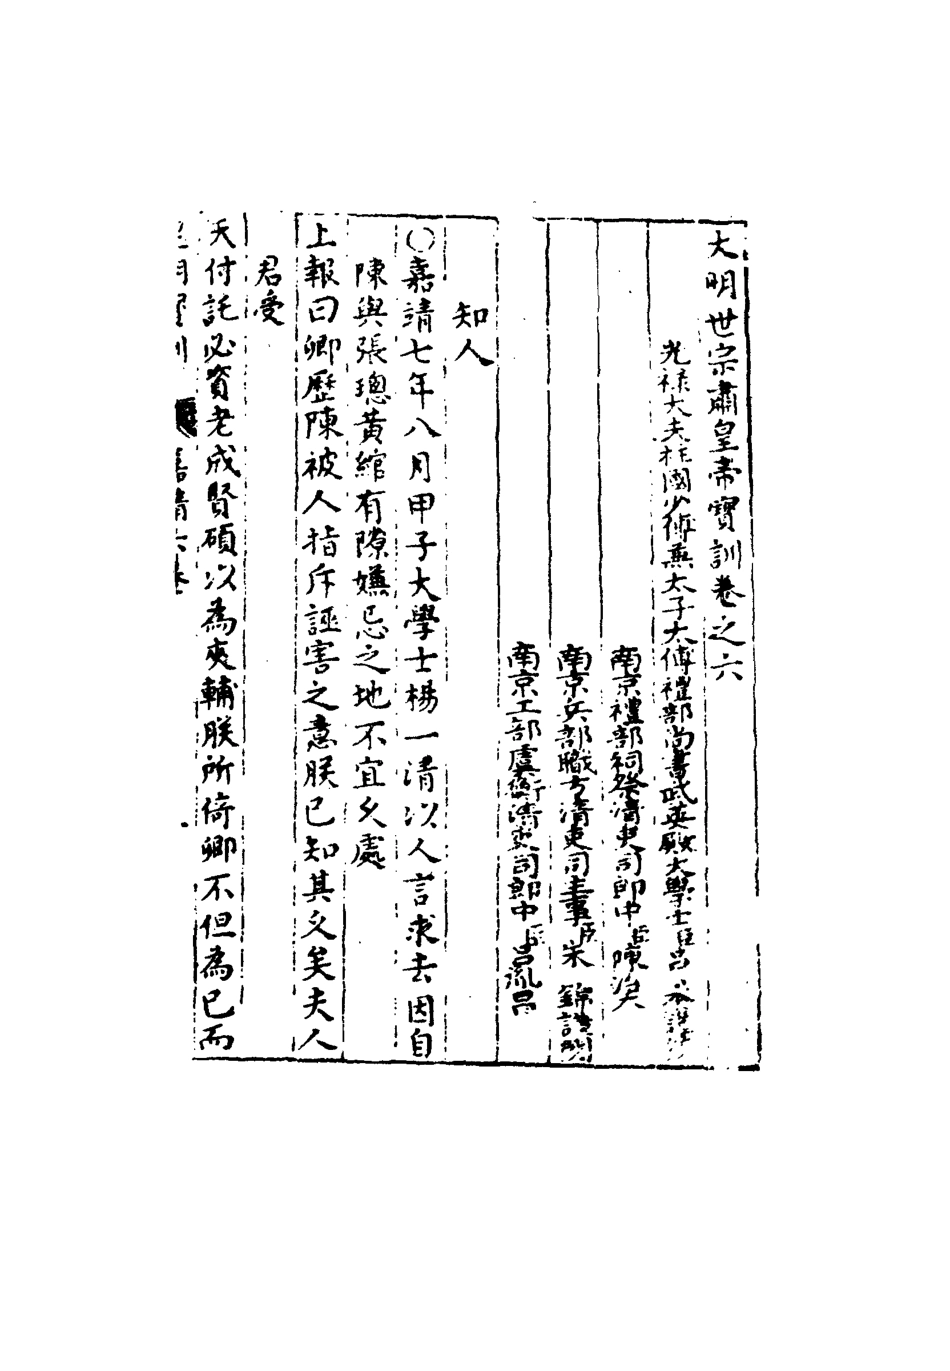 大明世宗肅皇帝寳訓卷之六
光祿大夫柱國少傅兼太子太傅禮部尚書武英殿大學士臣呂 本
南京禮部祠祭清吏司郎中臣陳
南京兵部職方清吏司主事臣宋 錦
南京工部虞衡清吏司郎中臣呂胤昌
知人
○嘉靖七年八月甲子大學士楊一清以人言求去因自
陳與張璁黃綰有隙嫌忌之地不宜久處
上報曰卿歷陳被人指斥誣害之意朕已知其久矣夫人
君受
天付託必資老成賢碩以為夾輔朕所倚卿不但為已而